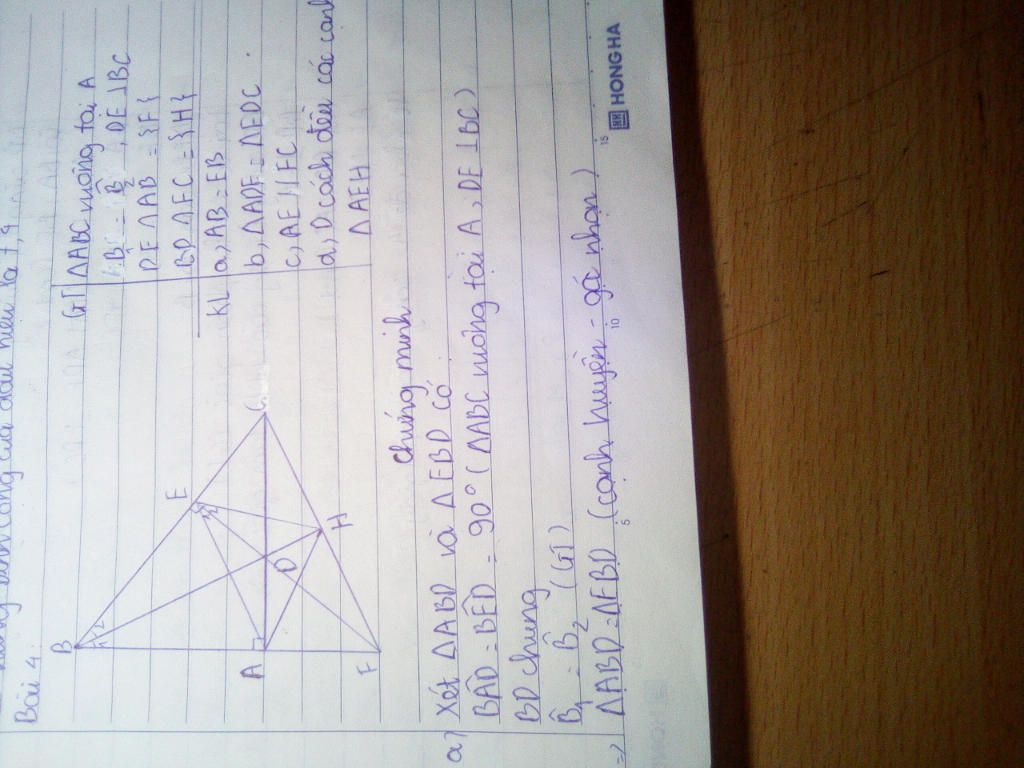 Bài 4.
B
1 2
E
A
D
C
H
F
GT ΔABC vuông tại A
B̂1 = B̂2, DE ⊥ BC
DE ∩ AB = {F}
BD ∩ FC = {H}
KL a, AB = EB
b, ΔADF = ΔEDC.
c, AE // FC
d, D cách đều các cạnh
ΔAEH
Chứng minh
a) Xét ΔABD và ΔEBD có
BÂD = BÊD = 90° (ΔABC vuông tại A, DE ⊥ BC)
BD chung
B̂1 = B̂2 (GT)
=> ΔABD = ΔEBD (cạnh huyền - góc nhọn)
5 10 15
HONG HA